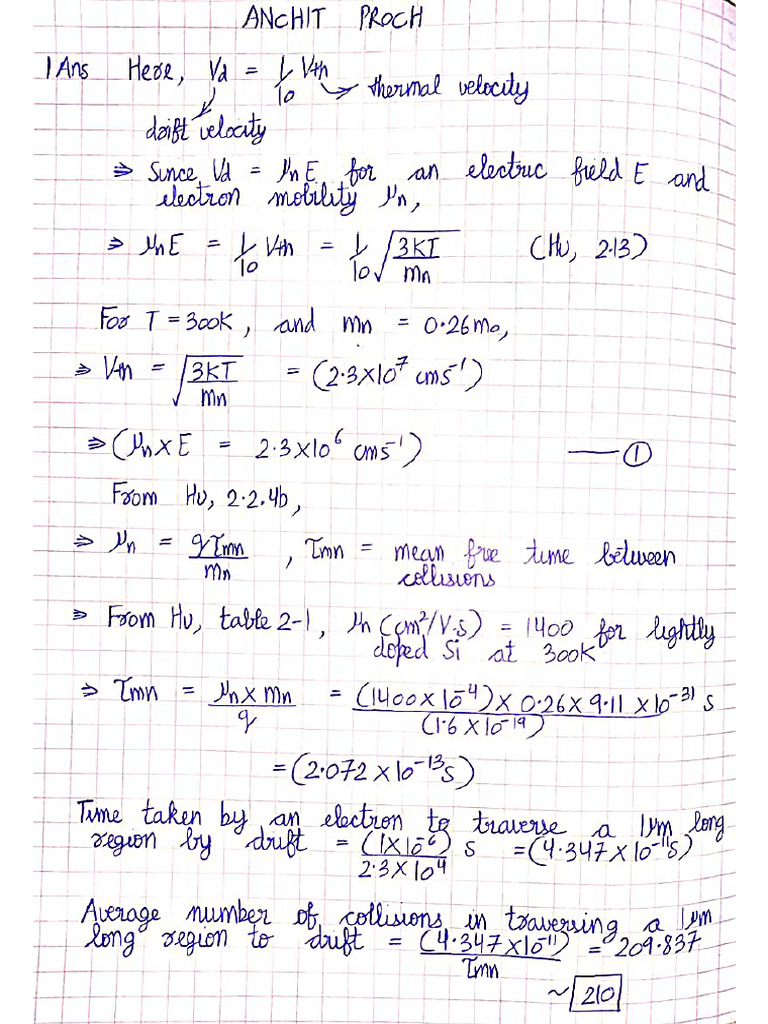 ANCHIT PROCH
1 Ans Here, Vd = 1/10 Vth → thermal velocity
drift velocity
⇒ Since Vd = μnE for an electric field E and
electron mobility μn,
⇒ μnE = 1/10 Vth = 1/10 √(3KT/mn) (Hu, 2.13)
For T = 300K, and mn = 0.26mo,
⇒ Vth = √(3KT/mn) = (2.3×10⁷ cms⁻¹)
⇒ (μn×E = 2.3×10⁶ cms⁻¹) —— ①
From Hu, 2.2.4b,
⇒ μn = qτmn/mn , τmn = mean free time between
collisions
⇒ From Hu, table 2-1, μn(cm²/V.s) = 1400 for lightly
doped Si at 300K
⇒ τmn = μn×mn/q = (1400×10⁻⁴)×0.26×9.11×10⁻³¹/(1.6×10⁻¹⁹) s
= (2.072×10⁻¹³s)
Time taken by an electron to traverse a 1μm long
region by drift = (1×10⁻⁶)/2.3×10⁴ s = (4.347×10⁻¹¹s)
Average number of collisions in traversing a 1μm
long region to drift = (4.347×10⁻¹¹)/τmn = 209.837
~ 210